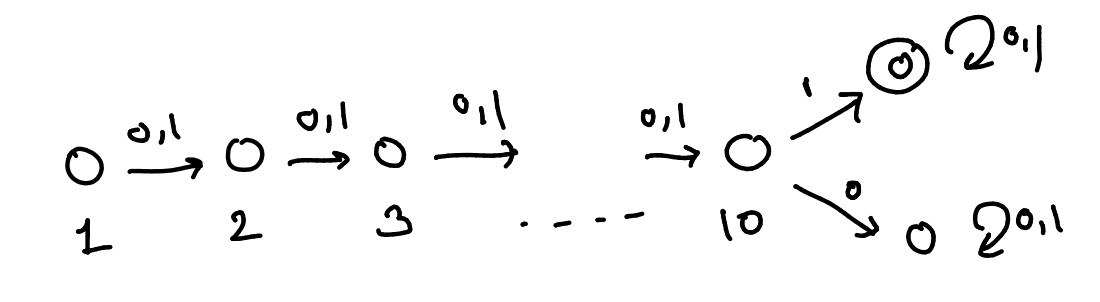 0,1
1
0,1 0,1 0,1 0,1
0
0,1
1 2 3 ..... 10